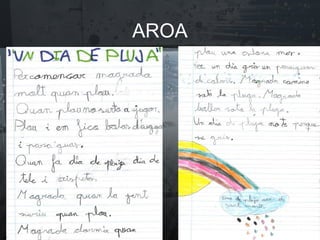 AROA
"UN DIA DE PLUJA"
Per comensar magrada
molt quan plou.
Quan plou no surto a jugar.
Plou i em fico botas daigua
i paraguas.
Quan fa dia de pluja dia de
tele i crispetes.
Magrada quan la gent
surt quan plou.
Magrada dormir quan
plou una estona mes.
Fer un dia gris un paraigues
de colors. Magrada caminar
sota la pluja. Magrada
ballar sota la pluja.
Un dia de pluja no te perque
se gris.